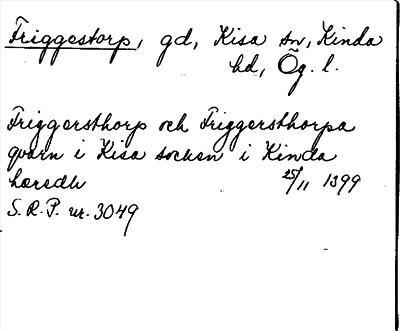 Friggestorp, gd, Kisa sn, Kinda
hd, Ög. l.
Friggersthorp och Friggersthorpa
qvarn i Kisa socken i Kinda
hæredh 25/11 1399
S. R. P. nr. 3049